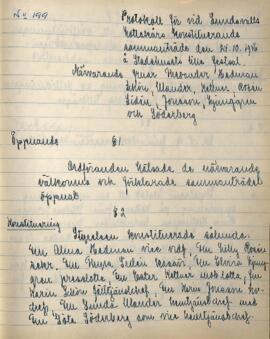 No 199
Protokoll för vid Sundsvalls
Lottakårs konstituerande
sammanträde den 25.10.1976
à Stadshusets lilla festsal.
Närvarande fruar Hedman
Schön, Wander, Kettner, Rosén
Sidén, Jonsson, Ljunggren
och Söderberg
Öppnande §1
Ordföranden hälsade de närvarande
välkomna och förklarade sammanträdet
öppnat.
§2
Konstituering
Styrelsen konstituerade sålunda:
Fru Alma Hedman vice ordf. Fru Rosén
sekr. Fru Sidén kassör, Fru Elvira Ljung
gren presslotta, Fru Ester Kettner mtrlotta, Fru
Karin Schön fälttjänstchef, Fru Karin Jonsson
Fru Wander hemtjänstchef med
Fru Göta Söderberg som vice hemtjänstchef.